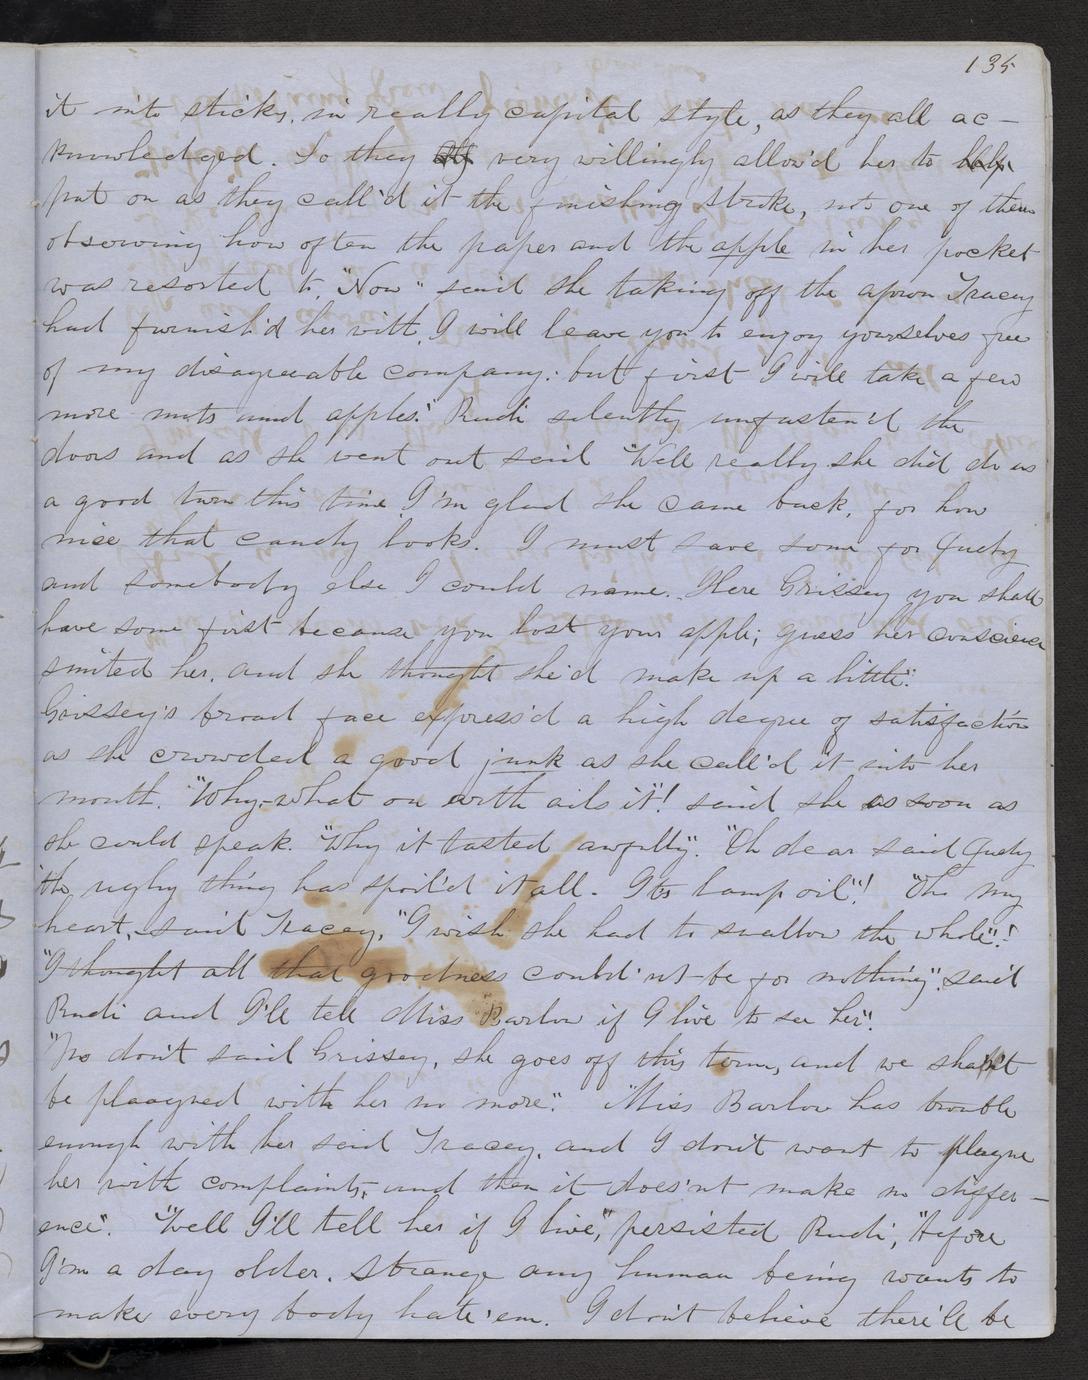 135
it into sticks, in really capital style, as they all ac-
knowledged. So they very willingly allow'd her to help
put on as they call'd it the finishing stroke, not one of them
observing how often the paper and the apple in her pocket
was resorted to. "Now" said she taking off the apron Tracey
had furnish'd her with, I will leave you to enjoy yourselves free
of my disagreeable company: but first I will take a few
more nuts and apples." Rudi silently unfasten'd the
doors and as she went out said "Well really she did do us
a good turn this time. I'm glad she came back, for how
nice that candy looks. I must save some for Judy
and somebody else I could name. Here Grissey you shall
have some first because you lost your apple; guess her conscience
smited her, and she thought she'd make up a little".
Grissey's broad face express'd a high degree of satisfaction
as she crowded a good junk as she call'd it into her
mouth. "Why-what on arth ails it"! said she as soon as
she could speak. "Why it tasted awfully". "Oh dear said Judy
the ugly thing has spoil'd it all. It's lamp oil"! "Oh my
heart, said Tracey, "I wish she had to swallow the whole"!
"I thought all that goodness could'nt be for nothing", said
Rudi and I'll tell Miss Barlow if I live to see her".
"No don't said Grissey, she goes off this term, and we sha'n't
be plaagned with her no more". "Miss Barlow has trouble
enough with her said Tracey, and I don't want to plague
her with complaints, and then it does'nt make no differ-
ence". "Well I'll tell her if I live", persisted Rudi, "Afore
I'm a day older. Strange any human being wants to
make every body hate 'em. I don't believe there'll be